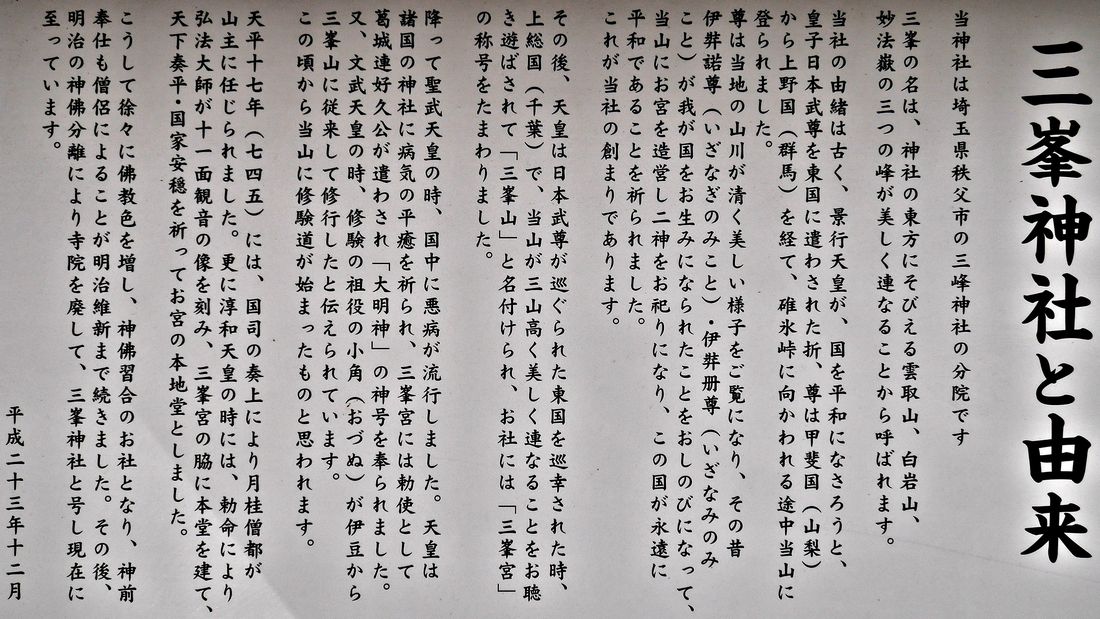 三峯神社と由来
当神社は埼玉県秩父市の三峰神社の分院です
三峯の名は、神社の東方にそびえる雲取山、白岩山、
妙法嶽の三つの峰が美しく連なることから呼ばれます。
当社の由緒は古く、景行天皇が、国を平和になさろうと、
皇子日本武尊を東国に遣わされた折、尊は甲斐国（山梨）
から上野国（群馬）を経て、碓氷峠に向かわれる途中当山に
登られました。
尊は当地の山川が清く美しい様子をご覧になり、その昔
伊弉諾尊（いざなぎのみこと）・伊弉册尊（いざなみのみ
こと）が我が国をお生みになられたことをおしのびになって、
当山にお宮を造営し二神をお祀りになり、この国が永遠に
平和であることを祈られました。
これが当社の創まりであります。
その後、天皇は日本武尊が巡ぐられた東国を巡幸された時、
上総国（千葉）で、当山が三山高く美しく連なることをお聴
き遊ばされて「三峯山」と名付けられ、お社には「三峯宮」
の称号をたまわりました。
降って聖武天皇の時、国中に悪病が流行しました。天皇は
諸国の神社に病気の平癒を祈られ、三峯宮には勅使として
葛城連好久公が遣わされ「大明神」の神号を奉られました。
又、文武天皇の時、修験の祖役の小角（おづぬ）が伊豆から
三峯山に従来して修行したと伝えられています。
この頃から当山に修験道が始まったものと思われます。
天平十七年（七四五）には、国司の奏上により月桂僧都が
山主に任じられました。更に淳和天皇の時には、勅命により
弘法大師が十一面観音の像を刻み、三峯宮の脇に本堂を建て、
天下奏平・国家安穏を祈ってお宮の本地堂としました。
こうして徐々に佛教色を増し、神佛習合のお社となり、神前
奉仕も僧侶によることが明治維新まで続きました。その後、
明治の神佛分離により寺院を廃して、三峯神社と号し現在に
至っています。
平成二十三年十二月